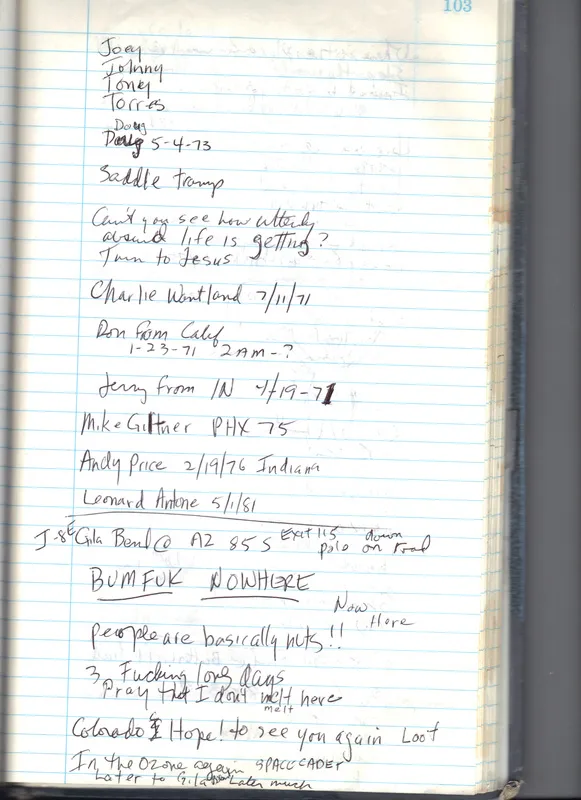 103
Joey
Johnny
Toney
Torres
Doug
Doug 5-4-73
Saddle tramp
Can't you see how utterly
absurd life is getting?
Turn to Jesus
Charlie Wantland 7/11/71
Ron from Calif
1-23-71 2AM-?
Jerry from IN 4/19-71
Mike Giltner PHX 75
Andy Price 2/19/76 Indiana
Leonard Antone 5/1/81
J-8E Gila Bend @ AZ 85 S Exit 115 down
pole on road
BUMFUK NOWHERE
Now Here
people are basically nuts!!
3 Fucking long days
Pray that I don't melt here
melt
Colorado Hope! to see you again Loot
In the Ozone again SPACECADET
Later to Gila Later much